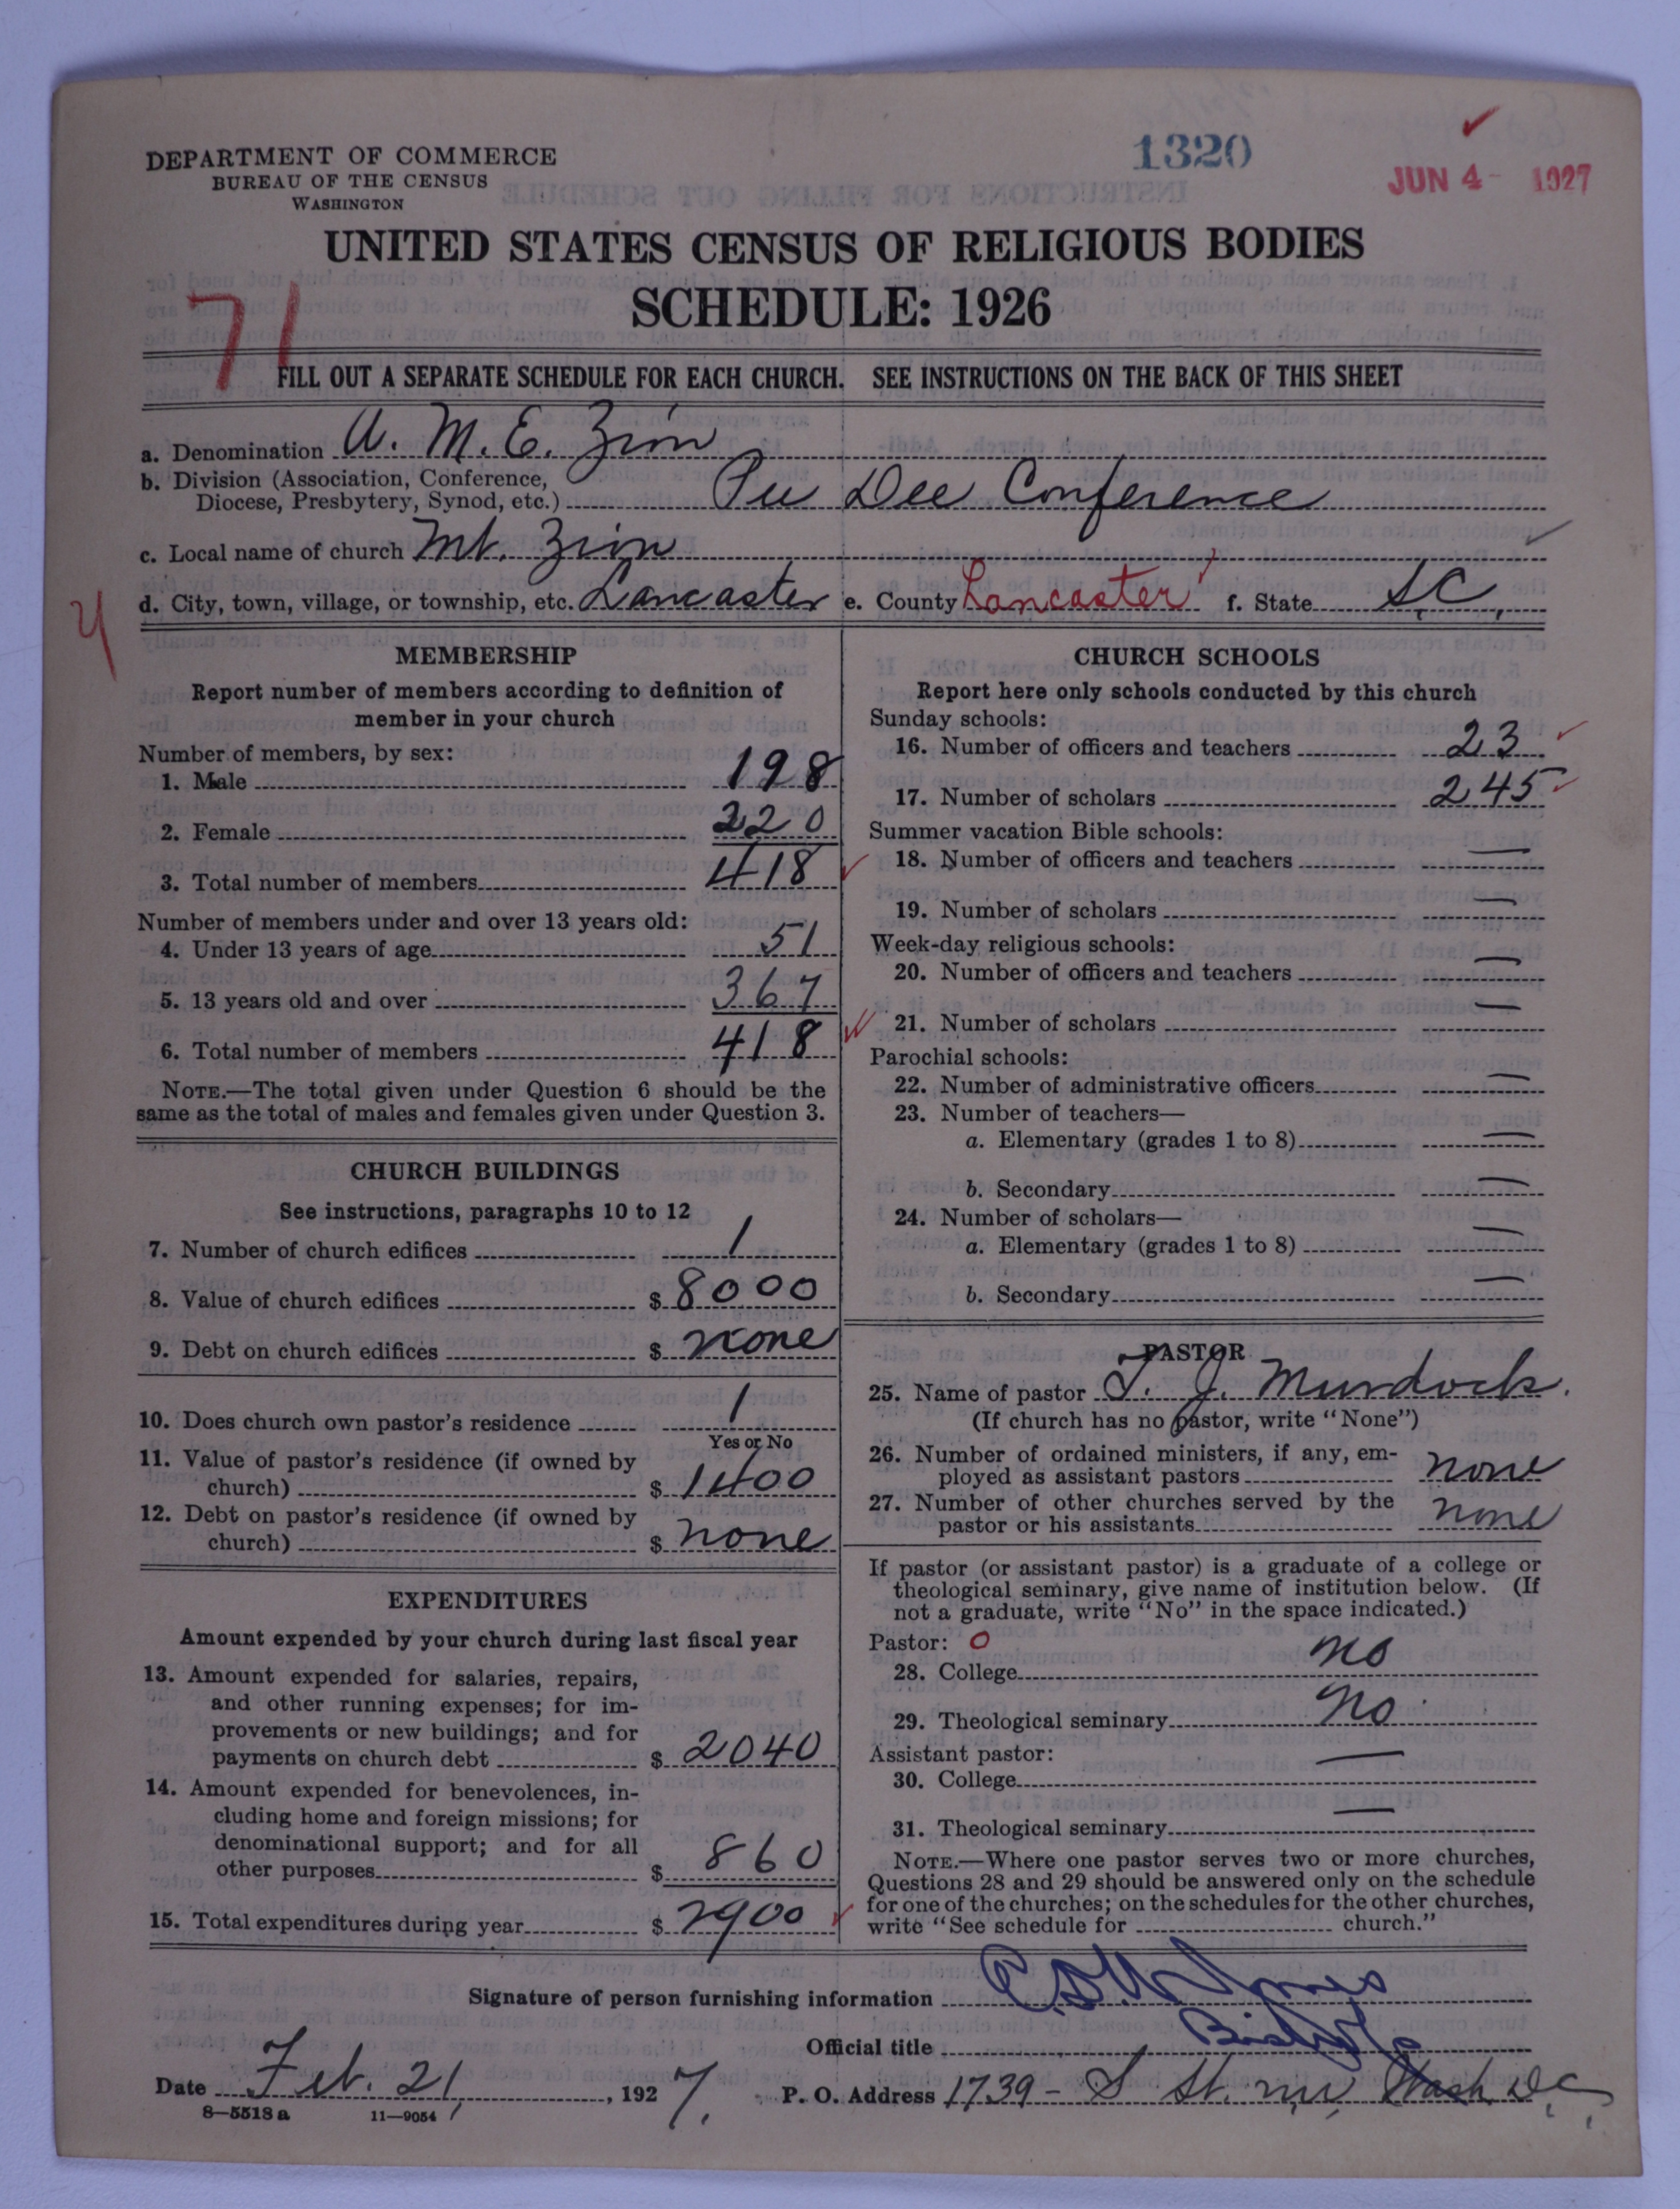 DEPARTMENT OF COMMERCE
BUREAU OF THE CENSUS
WASHINGTON
1320
JUN 4 - 1927
UNITED STATES CENSUS OF RELIGIOUS BODIES
SCHEDULE: 1926
71
FILL OUT A SEPARATE SCHEDULE FOR EACH CHURCH. SEE INSTRUCTIONS ON THE BACK OF THIS SHEET
a. Denomination A. M. E. Zion
b. Division (Association, Conference,
Diocese, Presbytery, Synod, etc.) Pee Dee Conference
c. Local name of church Mt. Zion
d. City, town, village, or township, etc. Lancaster e. County Lancaster f. State S.C.
MEMBERSHIP
Report number of members according to definition of
member in your church
Number of members, by sex:
1. Male 198
2. Female 220
3. Total number of members 418
Number of members under and over 13 years old:
4. Under 13 years of age 51
5. 13 years old and over 367
6. Total number of members 418
NOTE.—The total given under Question 6 should be the
same as the total of males and females given under Question 3.
CHURCH BUILDINGS
See instructions, paragraphs 10 to 12
7. Number of church edifices 1
8. Value of church edifices $ 8000
9. Debt on church edifices $ none
10. Does church own pastor's residence 1
Yes or No
11. Value of pastor's residence (if owned by
church) $ 1400
12. Debt on pastor's residence (if owned by
church) $ none
EXPENDITURES
Amount expended by your church during last fiscal year
13. Amount expended for salaries, repairs,
and other running expenses; for im-
provements or new buildings; and for
payments on church debt $ 2040
14. Amount expended for benevolences, in-
cluding home and foreign missions; for
denominational support; and for all
other purposes $ 860
15. Total expenditures during year $ 2900
CHURCH SCHOOLS
Report here only schools conducted by this church
Sunday schools:
16. Number of officers and teachers 23
17. Number of scholars 245
Summer vacation Bible schools:
18. Number of officers and teachers —
19. Number of scholars —
Week-day religious schools:
20. Number of officers and teachers —
21. Number of scholars —
Parochial schools:
22. Number of administrative officers —
23. Number of teachers—
a. Elementary (grades 1 to 8) —
b. Secondary —
24. Number of scholars—
a. Elementary (grades 1 to 8) —
b. Secondary —
PASTOR
25. Name of pastor T. J. Murdock.
(If church has no pastor, write "None")
26. Number of ordained ministers, if any, em-
ployed as assistant pastors none
27. Number of other churches served by the
pastor or his assistants none
If pastor (or assistant pastor) is a graduate of a college or
theological seminary, give name of institution below. (If
not a graduate, write "No" in the space indicated.)
Pastor: 0
28. College no
29. Theological seminary no.
Assistant pastor:
30. College —
31. Theological seminary —
NOTE.—Where one pastor serves two or more churches,
Questions 28 and 29 should be answered only on the schedule
for one of the churches; on the schedules for the other churches,
write "See schedule for church."
Signature of person furnishing information Jones
Official title Bishop
Date Feb. 21, 1927. P. O. Address 1739 - S St. nw, Wash D.C.
8—5518 a 11—9054